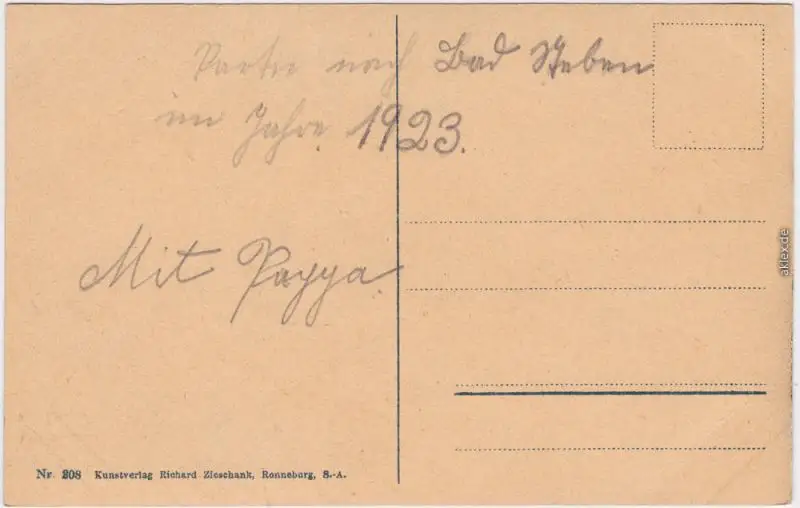 Partie nach Bad Steben
im Jahre 1923.
Mit Pappa.
Nr. 208 Kunstverlag Richard Zieschank, Ronneburg, S.-A.
aklex.de